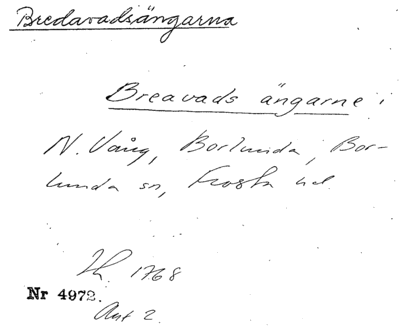 Bredavadsängarna
Breavads ängarne i
N. Vång, Borlunda, Bor-
lunda sn, Frosta hd
1768
Nr 4972.
Akt 2